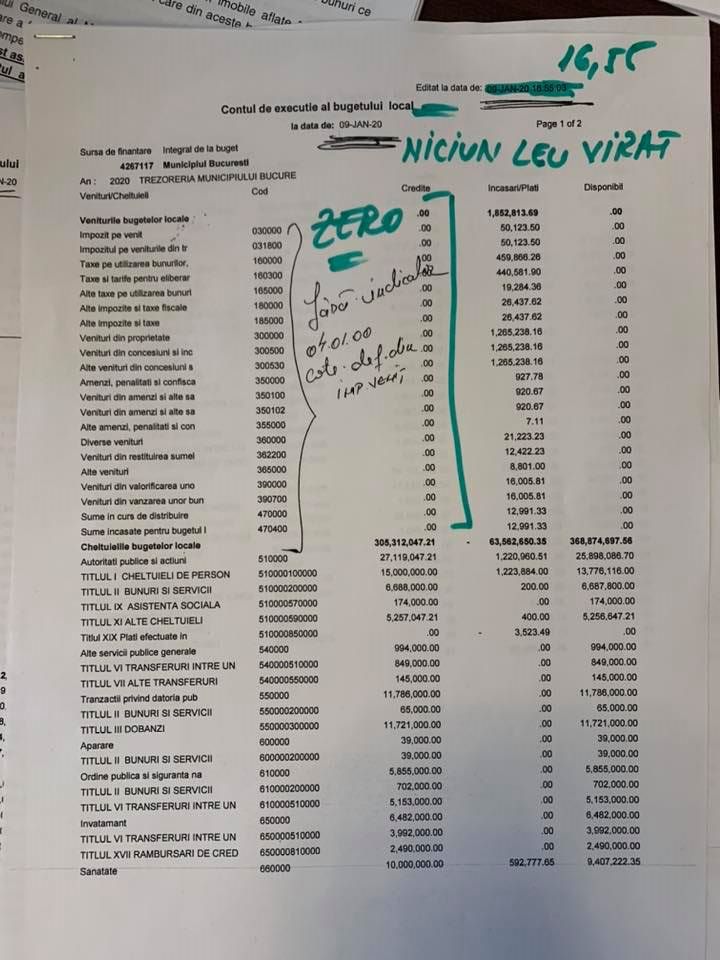 General al
imobile aflate
bunuri ce
care din aceste
16,55
Editat la data de: 09-JAN-20 16:55:03
Contul de executie al bugetului local
la data de: 09-JAN-20
Page 1 of 2
NICIUN LEU VIRAT
Sursa de finantare Integral de la buget
4267117 Municipiul Bucuresti
An : 2020 TREZORERIA MUNICIPIULUI BUCURE
Venituri/Cheltuieli Cod Credite Incasari/Plati Disponibil
ZERO
fără indicator
04.01.00
cote def. din
IMP VENIT
Veniturile bugetelor locale .00 1,852,813.69 .00
Impozit pe venit 030000 .00 50,123.50 .00
Impozitul pe veniturile din tr 031800 .00 50,123.50 .00
Taxe pe utilizarea bunurilor, 160000 .00 459,866.26 .00
Taxe si tarife pentru eliberar 160300 .00 440,581.90 .00
Alte taxe pe utilizarea bunuri 165000 .00 19,284.36 .00
Alte impozite si taxe fiscale 180000 .00 26,437.62 .00
Alte impozite si taxe 185000 .00 26,437.62 .00
Venituri din proprietate 300000 .00 1,265,238.16 .00
Venituri din concesiuni si inc 300500 .00 1,265,238.16 .00
Alte venituri din concesiuni s 300530 .00 1,265,238.16 .00
Amenzi, penalitati si confisca 350000 .00 927.78 .00
Venituri din amenzi si alte sa 350100 .00 920.67 .00
Venituri din amenzi si alte sa 350102 .00 920.67 .00
Alte amenzi, penalitati si con 355000 .00 7.11 .00
Diverse venituri 360000 .00 21,223.23 .00
Venituri din restituirea sumel 362200 .00 12,422.23 .00
Alte venituri 365000 .00 8,801.00 .00
Venituri din valorificarea uno 390000 .00 16,005.81 .00
Venituri din vanzarea unor bun 390700 .00 16,005.81 .00
Sume in curs de distribuire 470000 .00 12,991.33 .00
Sume incasate pentru bugetul l 470400 .00 12,991.33 .00
Cheltuielile bugetelor locale 305,312,047.21 - 63,562,650.35 368,874,697.56
Autoritati publice si actiuni 510000 27,119,047.21 1,220,960.51 25,898,086.70
TITLUL I CHELTUIELI DE PERSON 510000100000 15,000,000.00 1,223,884.00 13,776,116.00
TITLUL II BUNURI SI SERVICII 510000200000 6,688,000.00 200.00 6,687,800.00
TITLUL IX ASISTENTA SOCIALA 510000570000 174,000.00 .00 174,000.00
TITLUL XI ALTE CHELTUIELI 510000590000 5,257,047.21 400.00 5,256,647.21
Titlul XIX Plati efectuate in 510000850000 .00 - 3,523.49 .00
Alte servicii publice generale 540000 994,000.00 .00 994,000.00
TITLUL VI TRANSFERURI INTRE UN 540000510000 849,000.00 .00 849,000.00
TITLUL VII ALTE TRANSFERURI 540000550000 145,000.00 .00 145,000.00
Tranzactii privind datoria pub 550000 11,786,000.00 .00 11,786,000.00
TITLUL II BUNURI SI SERVICII 550000200000 65,000.00 .00 65,000.00
TITLUL III DOBANZI 550000300000 11,721,000.00 .00 11,721,000.00
Aparare 600000 39,000.00 .00 39,000.00
TITLUL II BUNURI SI SERVICII 600000200000 39,000.00 .00 39,000.00
Ordine publica si siguranta na 610000 5,855,000.00 .00 5,855,000.00
TITLUL II BUNURI SI SERVICII 610000200000 702,000.00 .00 702,000.00
TITLUL VI TRANSFERURI INTRE UN 610000510000 5,153,000.00 .00 5,153,000.00
Invatamant 650000 6,482,000.00 .00 6,482,000.00
TITLUL VI TRANSFERURI INTRE UN 650000510000 3,992,000.00 .00 3,992,000.00
TITLUL XVII RAMBURSARI DE CRED 650000810000 2,490,000.00 .00 2,490,000.00
Sanatate 660000 10,000,000.00 592,777.65 9,407,222.35